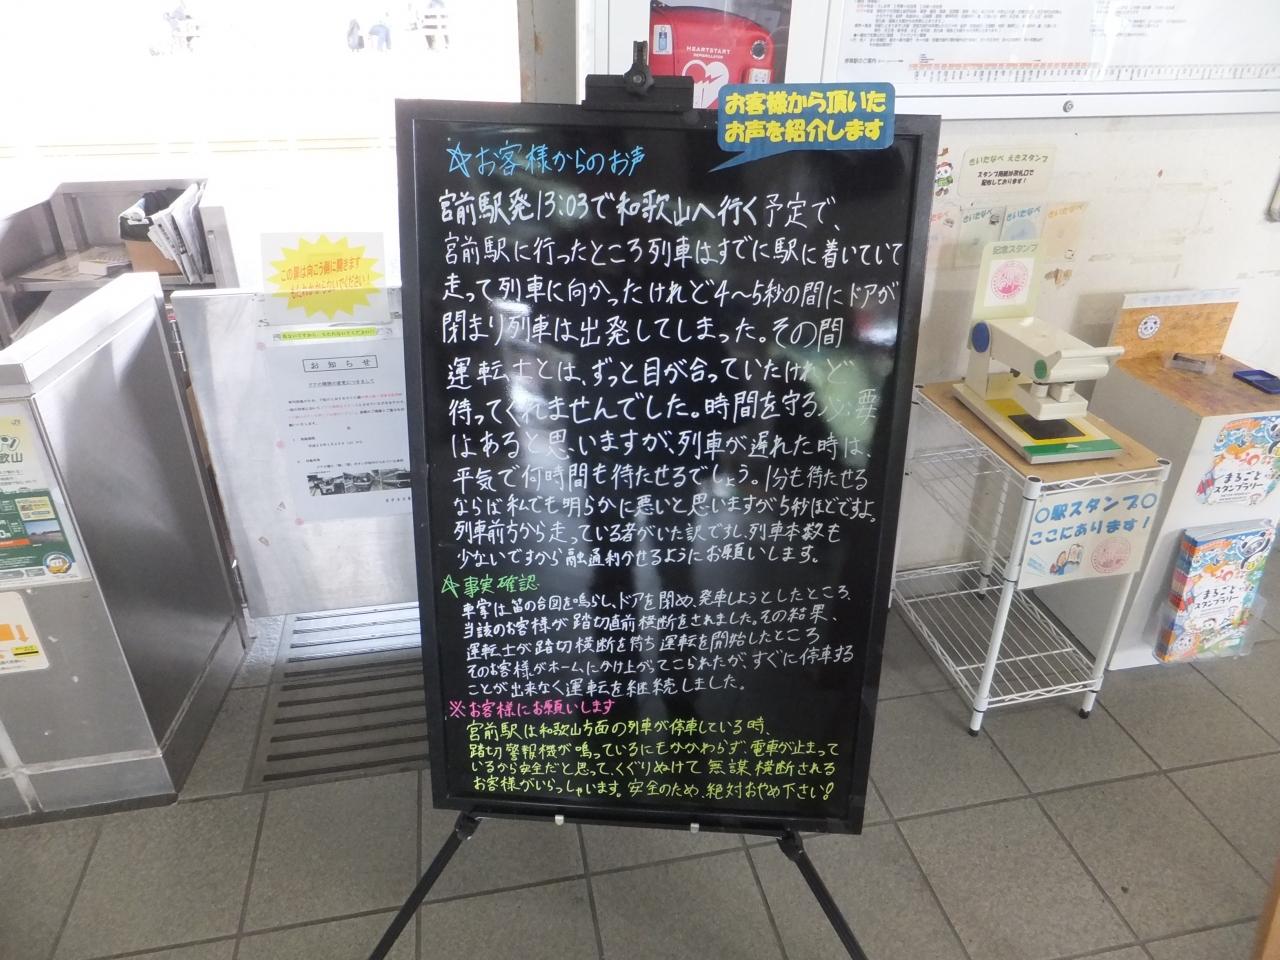 HEARTSTART
DEFIBRILLATOR
お客様から頂いた
お声を紹介します
☆お客様からのお声
宮前駅発13:03で和歌山へ行く予定で、
宮前駅に行ったところ列車はすでに駅に着いていて
走って列車に向かったけれど4〜5秒の間にドアが
閉まり列車は出発してしまった。その間
運転士とは、ずっと目が合っていたけれど
待ってくれませんでした。時間を守る必要
はあると思いますが、列車が遅れた時は、
平気で何時間も待たせるでしょう。1分も待たせる
ならば私でも明らかに悪いと思いますが5秒ほどですよ。
列車前方から走っている者がいた訳ですし、列車本数も
少ないですから融通利かせるようにお願いします。
☆事実確認
車掌は笛の合図を鳴らし、ドアを閉め、発車しようとしたところ、
当該のお客様が踏切直前横断をされました。その結果、
運転士が踏切横断を待ち運転を開始したところ
そのお客様がホームにかけ上がってこられたが、すぐに停車する
ことが出来なく運転を継続しました。
※お客様にお願いします
宮前駅は和歌山方面の列車が停車している時、
踏切警報機が鳴っているにもかかわらず、電車が止まって
いるから安全だと思って、くぐりぬけて無謀横断される
お客様がいらっしゃいます。安全のため、絶対おやめ下さい!
この扉は向こう側に開きます
もたれかからないでください!
お知らせ
きいたなべ えきスタンプ
スタンプ用紙は改札口で
配布しております!
記念スタンプ
○駅スタンプ○
ここにあります!
まるごと
スタンプラリー
まるごと
スタンプラリー